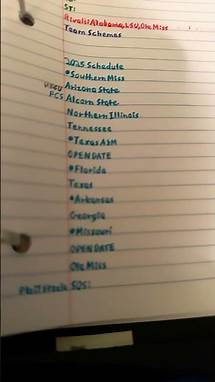 ST:
Rivals: Alabama, LSU, Ole Miss
Team Schemes
2025 Schedule
*Southern Miss
Arizona State
FCS Alcorn State
Northern Illinois
Tennessee
*Texas A&M
OPEN DATE
*Florida
Texas
*Arkansas
Georgia
*Missouri
OPEN DATE
Ole Miss
Phil Steele SOS: